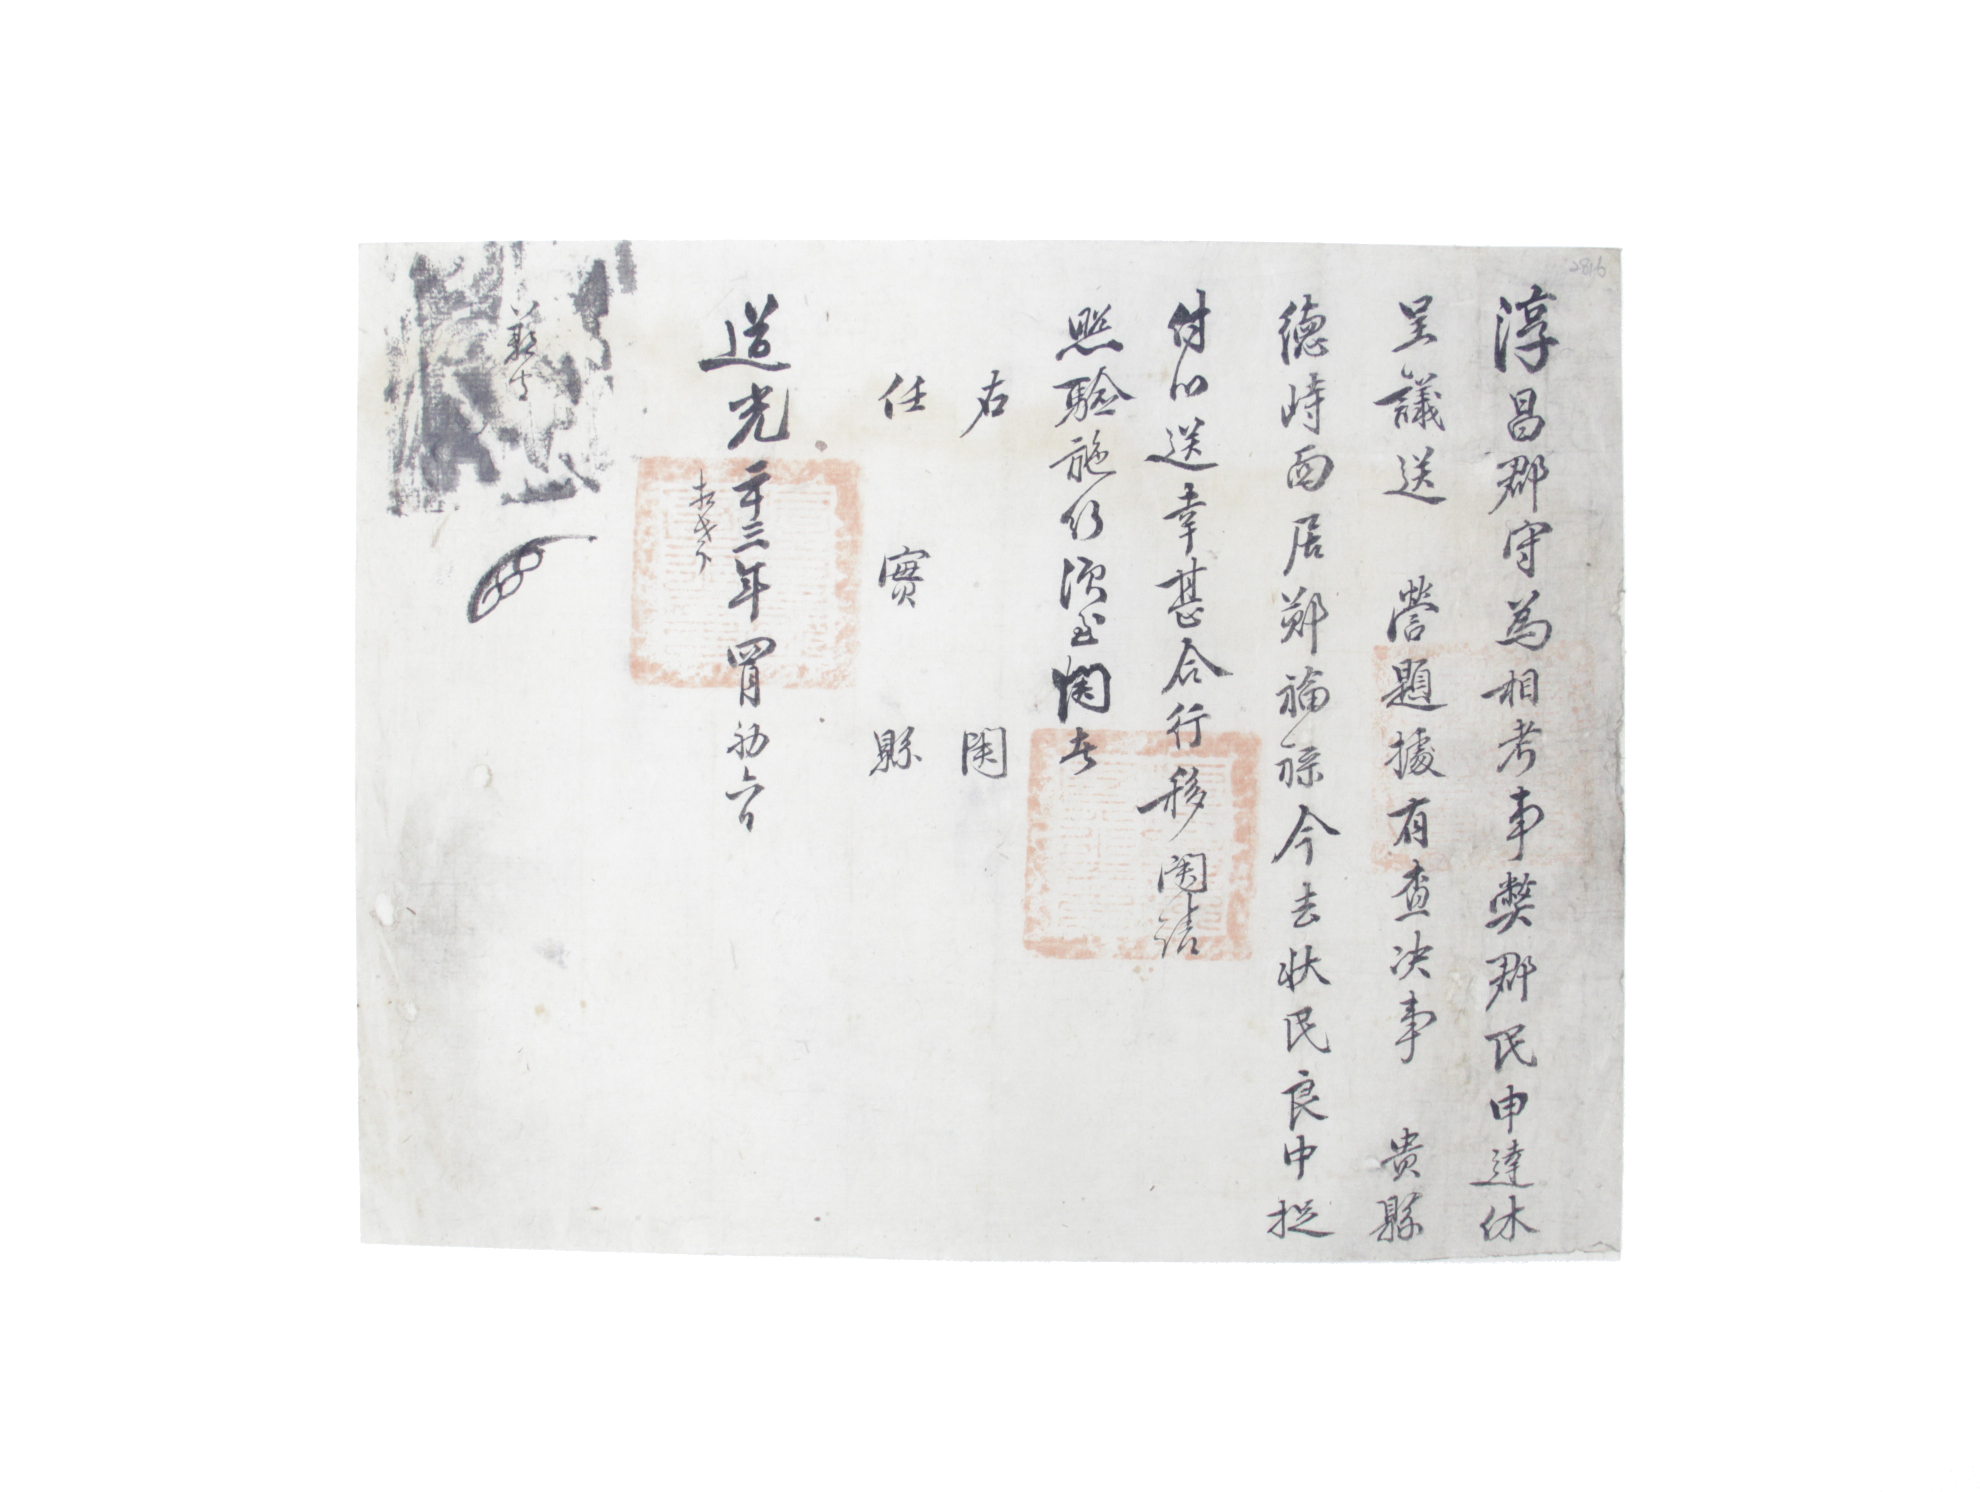 淳昌郡守爲相考事弊郡民申達休
呈議送 營題據有査决事 貴縣
德峙面居鄭福祿今去狀民良中捉
付以送幸甚合行移關請
照驗施行須至關者
右 關
任 實 縣
道光二十三年四月初六日
相考